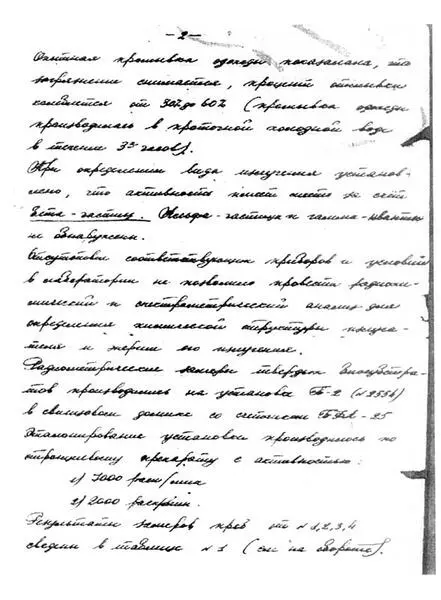 – 2 –
Опытная промывка одежды показала, что
загрязнение снимается, процент отмывки
колеблется от 30% до 60% (промывка одежды
производилась в проточной холодной воде
в течение 3х часов).
При определении вида излучения установ-
лено, что активность имеет место за счет
бета-частиц. Альфа-частиц и гамма-квантов
не обнаружено.
Отсутствие соответствующих приборов и условий
в лаборатории не позволило провести радиохи-
мический и спектрометрический анализ для
определения химической структуры излуча-
теля и энергии его излучения.
Радиометрические замеры твердых биосубстра-
тов производились на установке Б-2 (№ 2556)
в свинцовом домике со счетчиком БФЛ-25
Эталонирование установки производилось по
стронциевому препарату с активностью:
1) 3000 расп/мин
2) 2000 расп/мин.
Результаты замеров проб от № 1,2,3,4
сведены в таблицу № 1 (см. на обороте).